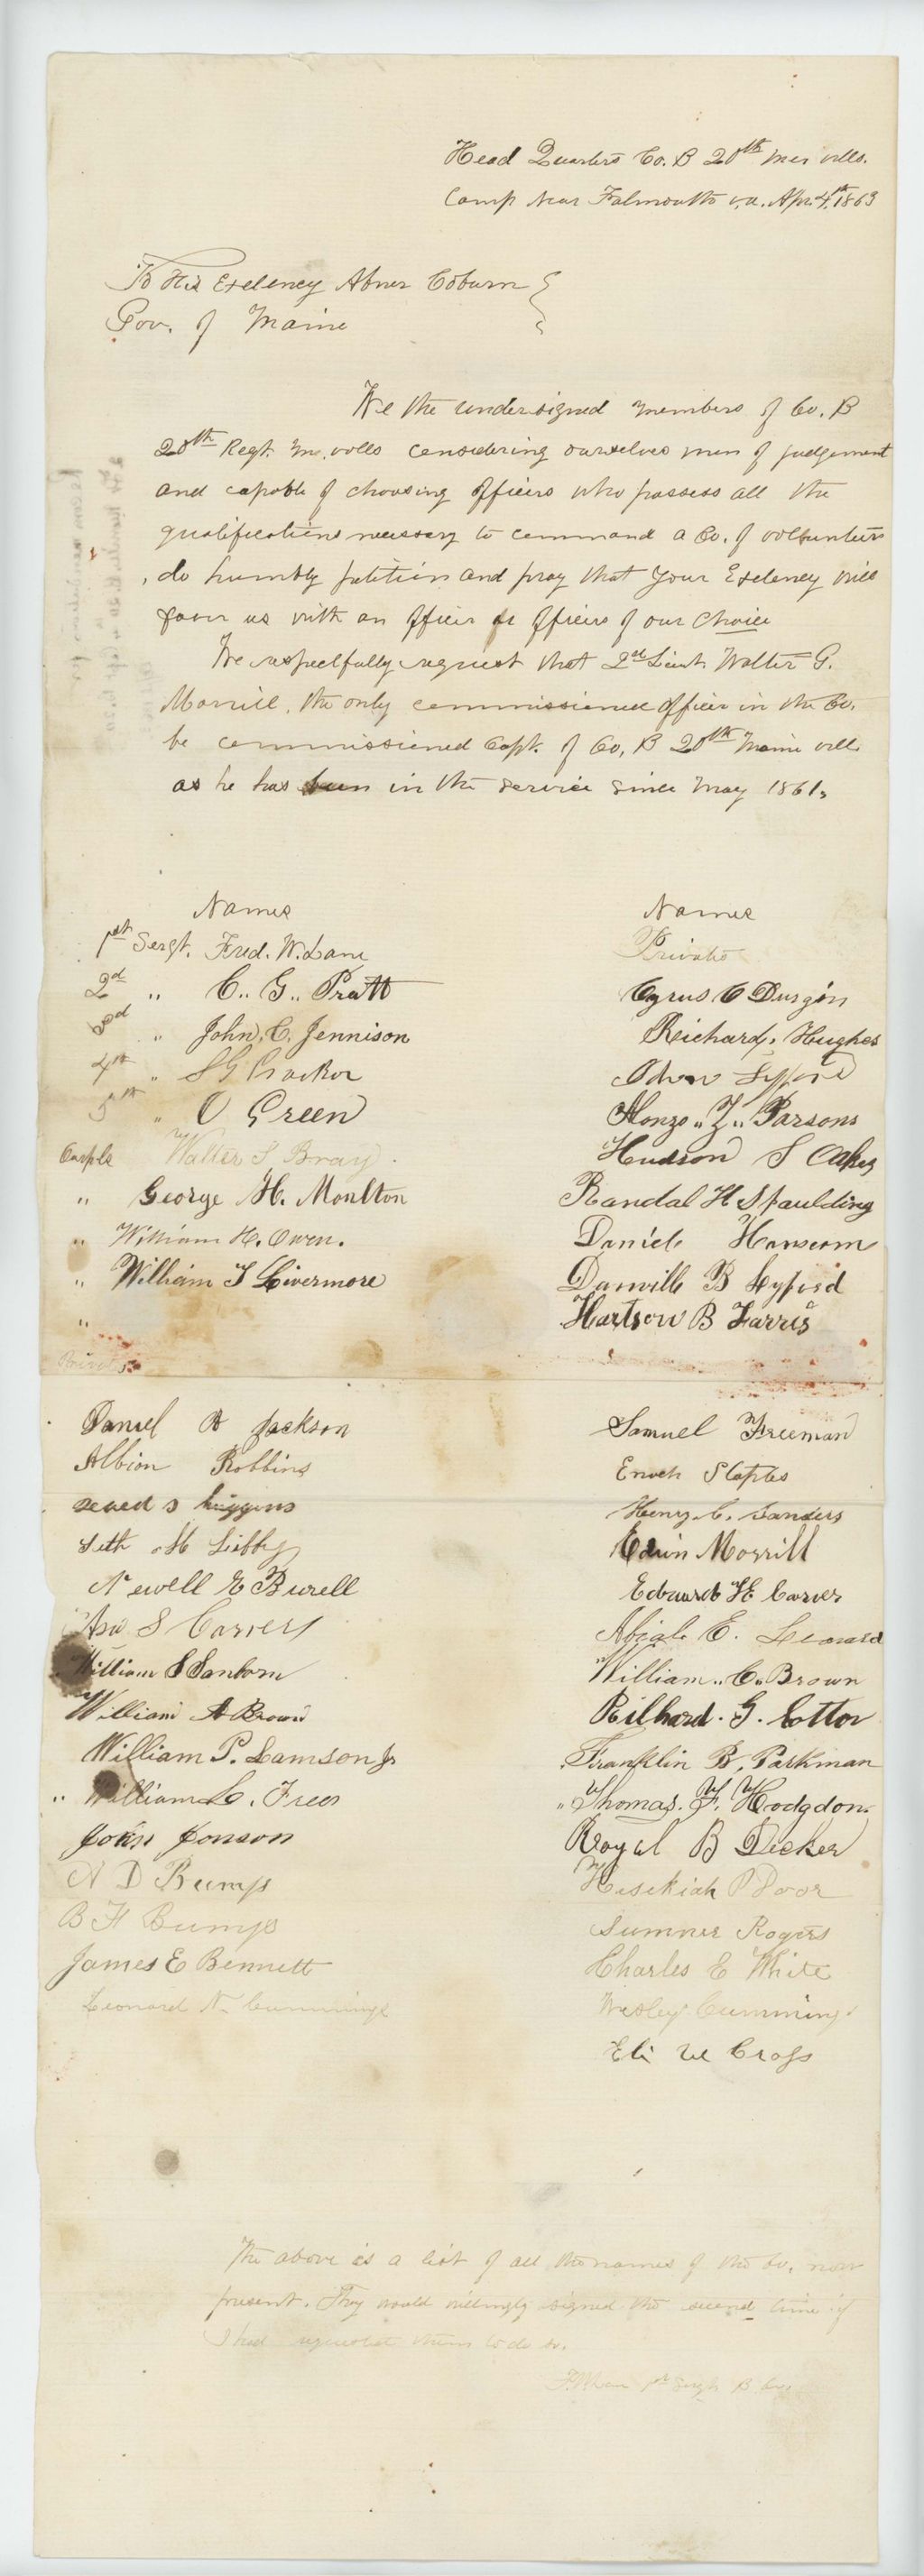 Head Quarters Co. B 20th Me vills.
Camp Near Falmouth va. Apr. 4th 1863
To His Exelency Abner Coburn
Gov. of Maine
We the undersigned members of Co. B
20th Regt. Me. volls considering ourselves men of judgement
and capable of choosing officers who possess all the
qualifications necessary to command a Co. of voluntiers
, do humbly petition and pray that Your Exelency will
favor us with an officer or officers of our choice
We respectfully request that 2nd Lieut. Walter G.
Morrill, the only commissioned officer in the Co.
be commissioned Capt. of Co, B 20th Maine voll.
as he has been in the service since May 1861.
Names
Names
1st Sergt. Fred. W. Lane
2d " C.. G.. Pratt
3d " John, C. Jennison
4th " S G Crocker
5th " O Green
Corpls Walter S Bray.
" George H. Moulton
" William H. Owen.
" William T Livermore
"
Privates
Daniel A Jackson
Albion Robbins
seued s higgins
Seth M Libby
Newell E Burell
Asa S Carver
William S Sanborn
William A Brown
William P. Lamson Jr
" William L. Frees
John Jonson
A D Bumps
B F Bumps
James E Bennett
Leonard N. Cummings
Privates
Cyrus C Durgin
Richard, Hughes
Lyford
Alonzo .. Z .. Parsons
Hudson S Oakes
Randal H Spaulding
Daniel Hanscom
Danville B Lyford
Hartson B Farris
Samuel Freeman
Enoch Staples
Henry C. Sanders
Edwin Morrill
Edward H Carver
Abial E. Leonard
William .. C. Brown
Rilhard. G. Cotton
Franklin B. Parkman
" Thomas. F. Hodgdon.
Royal B Decker
Hesekiah P Door
Sumner Rogers
Charles E White
Wesley Cummings
Eli W Cross
The above is a list of all the names of the Co. now
present. They would willingly signed the second time if
I had requested them to do so.
F. W. Lane 1st Sergt B Co